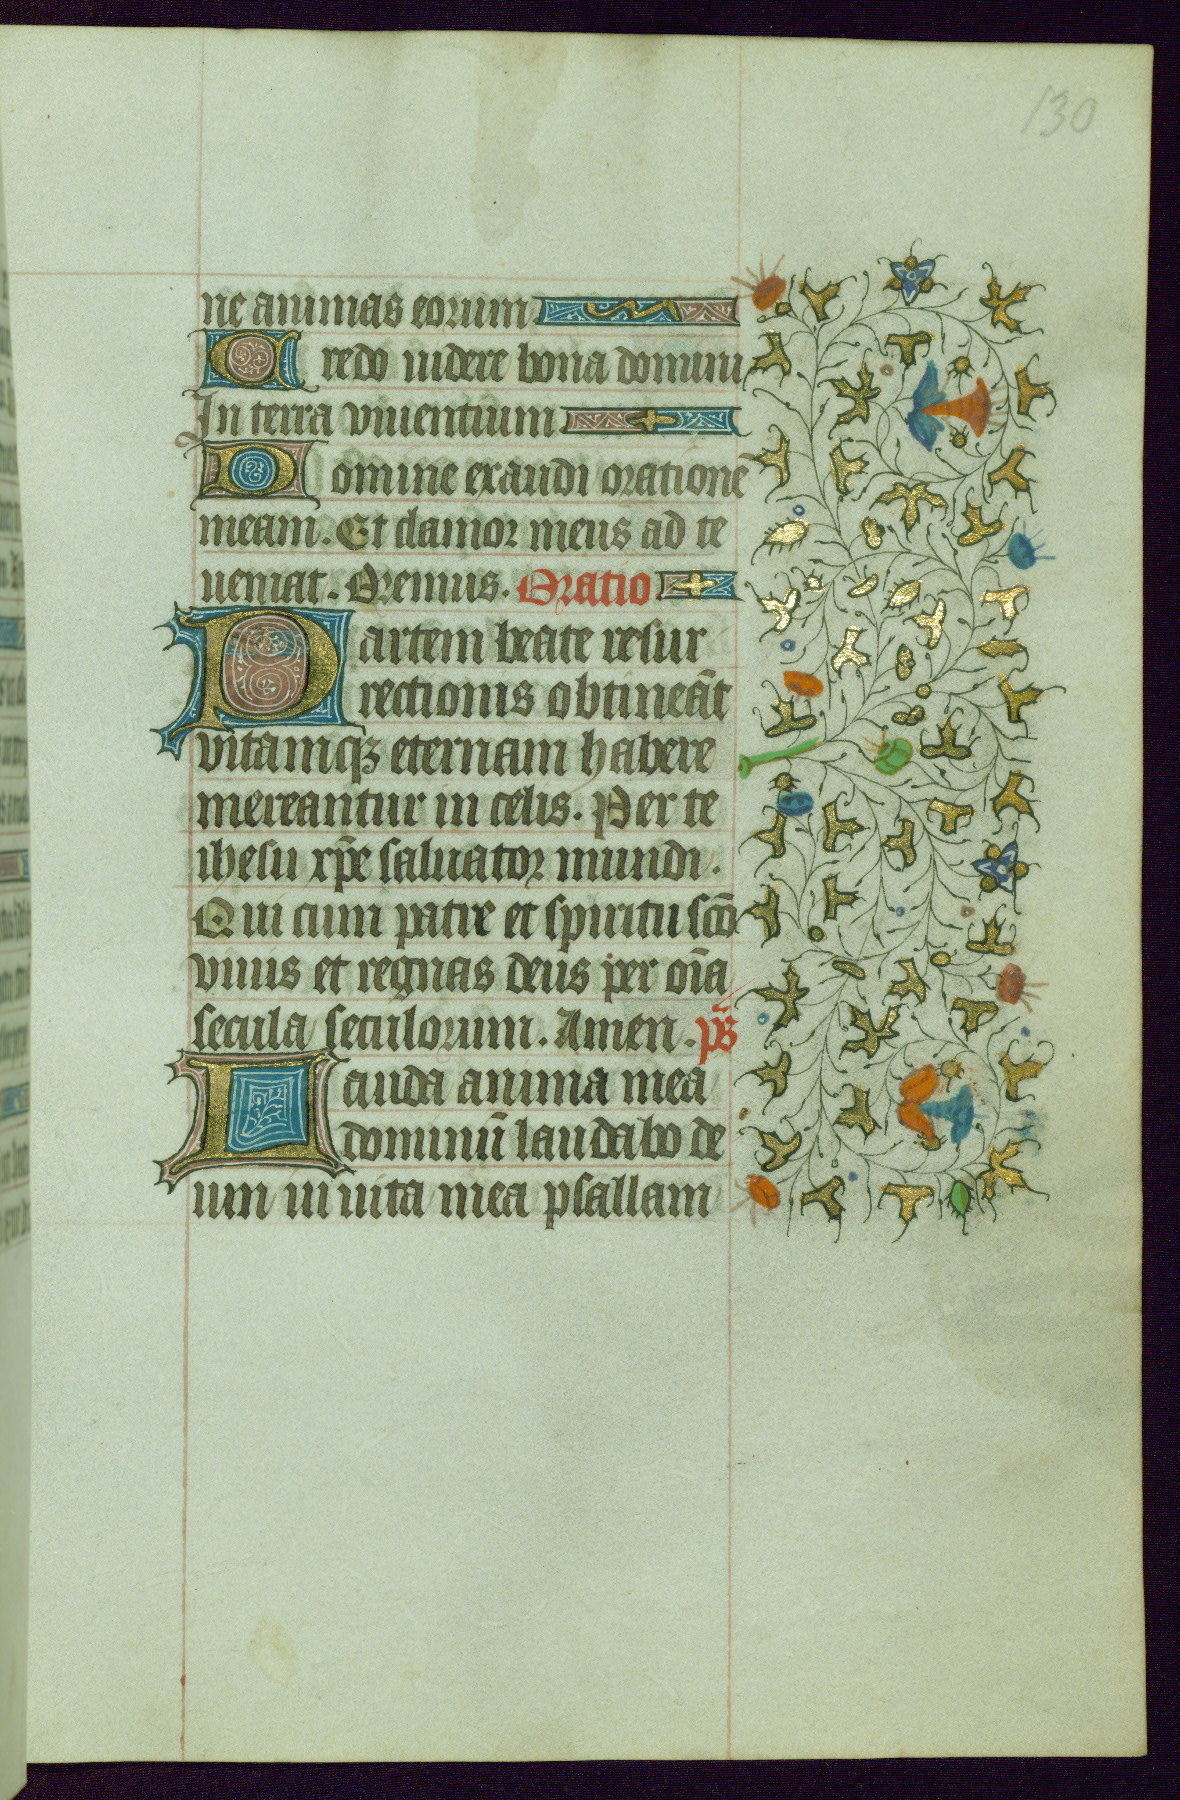 130
ne animas eorum
Credo uidere bona domini
In terra viuentium
Domine exaudi oratione᷉
meam. Et clamor meus ad te
ueniat. Oremus. Oratio
Partem beate resur
rectionis obtineāt
vitamqꝫ eternam habere
mereantur in celis. Per te
ihesu xp̄e saluator mundi.
Qui cum patre et spiritu sc̄o
viuis et regnas deus per oīa
secula seculorum. Amen. ps̄
Lauda anima mea
dominū laudabo de
um in uita mea psallam